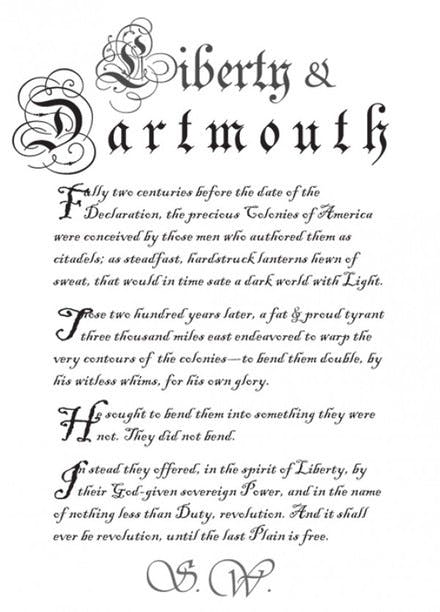 Liberty &
Dartmouth
Fully two centuries before the date of the
Declaration, the precious Colonies of America
were conceived by those men who authored them as
citadels; as steadfast, hardstruck lanterns hewn of
sweat, that would in time sate a dark world with Light.
Those two hundred years later, a fat & proud tyrant
three thousand miles east endeavored to warp the
very contours of the colonies—to bend them double, by
his witless whims, for his own glory.
He sought to bend them into something they were
not. They did not bend.
In stead they offered, in the spirit of Liberty, by
their God-given sovereign Power, and in the name
of nothing less than Duty, revolution. And it shall
ever be revolution, until the last Plain is free.
S. W.